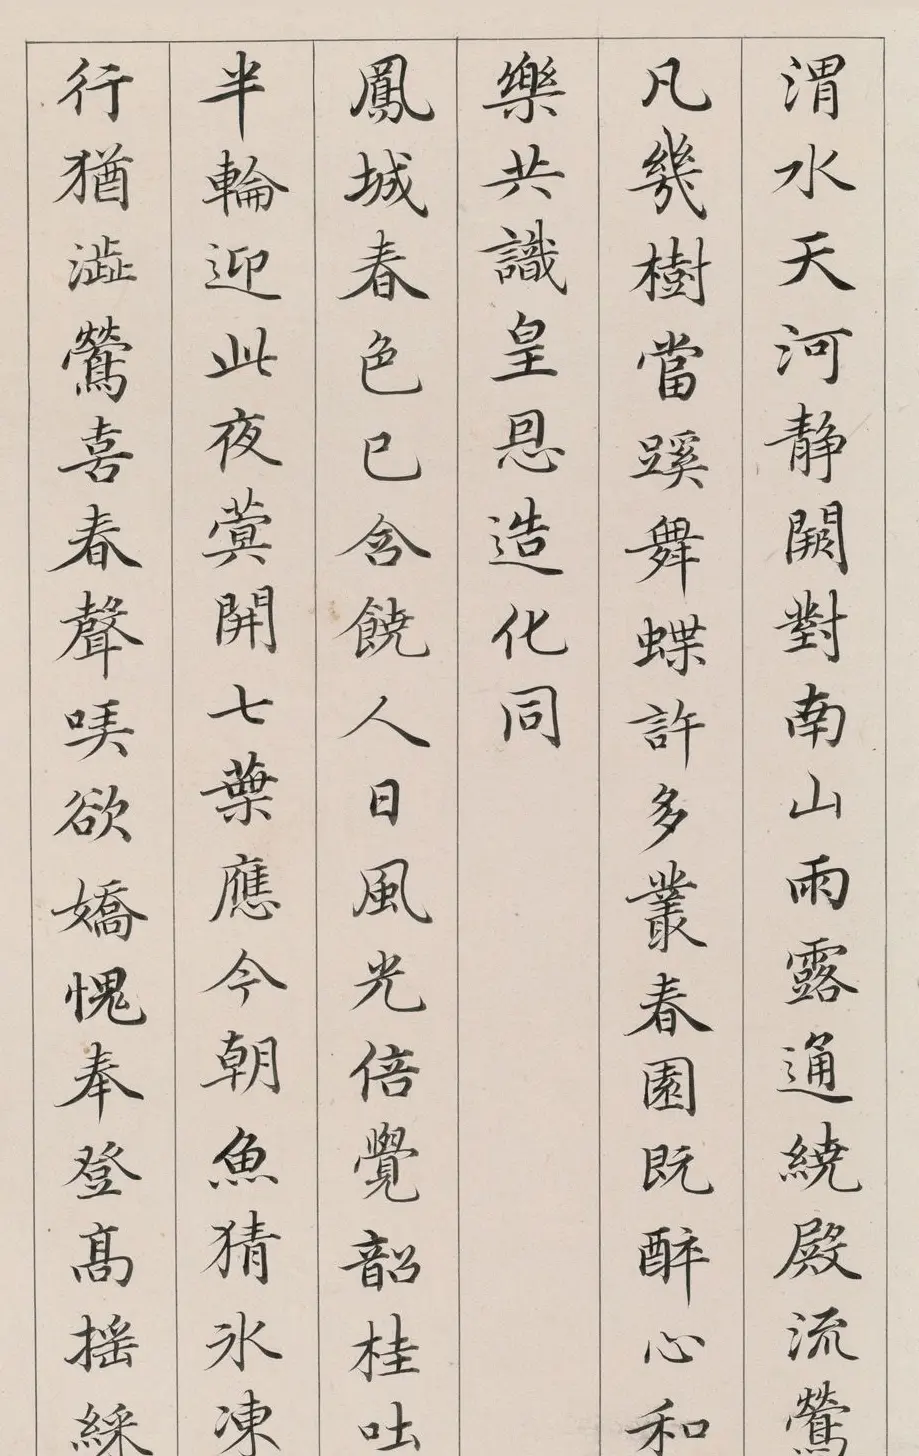 渭水天河静闕對南山雨露通繞殿流鶯
凡幾樹當蹊舞蝶許多叢春園既醉心和
樂共識皇恩造化同
鳳城春色已含饒人日風光倍覺韶桂吐
半輪迎此夜蓂開七葉應今朝魚猜氷凍
行猶澁鶯喜春聲㗛欲嬌愧奉登髙摇綵